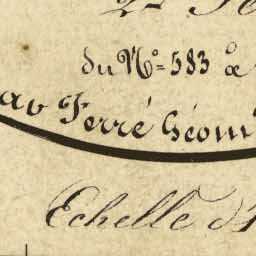 du N.º 583 à
par Ferré Géom
Echelle d'